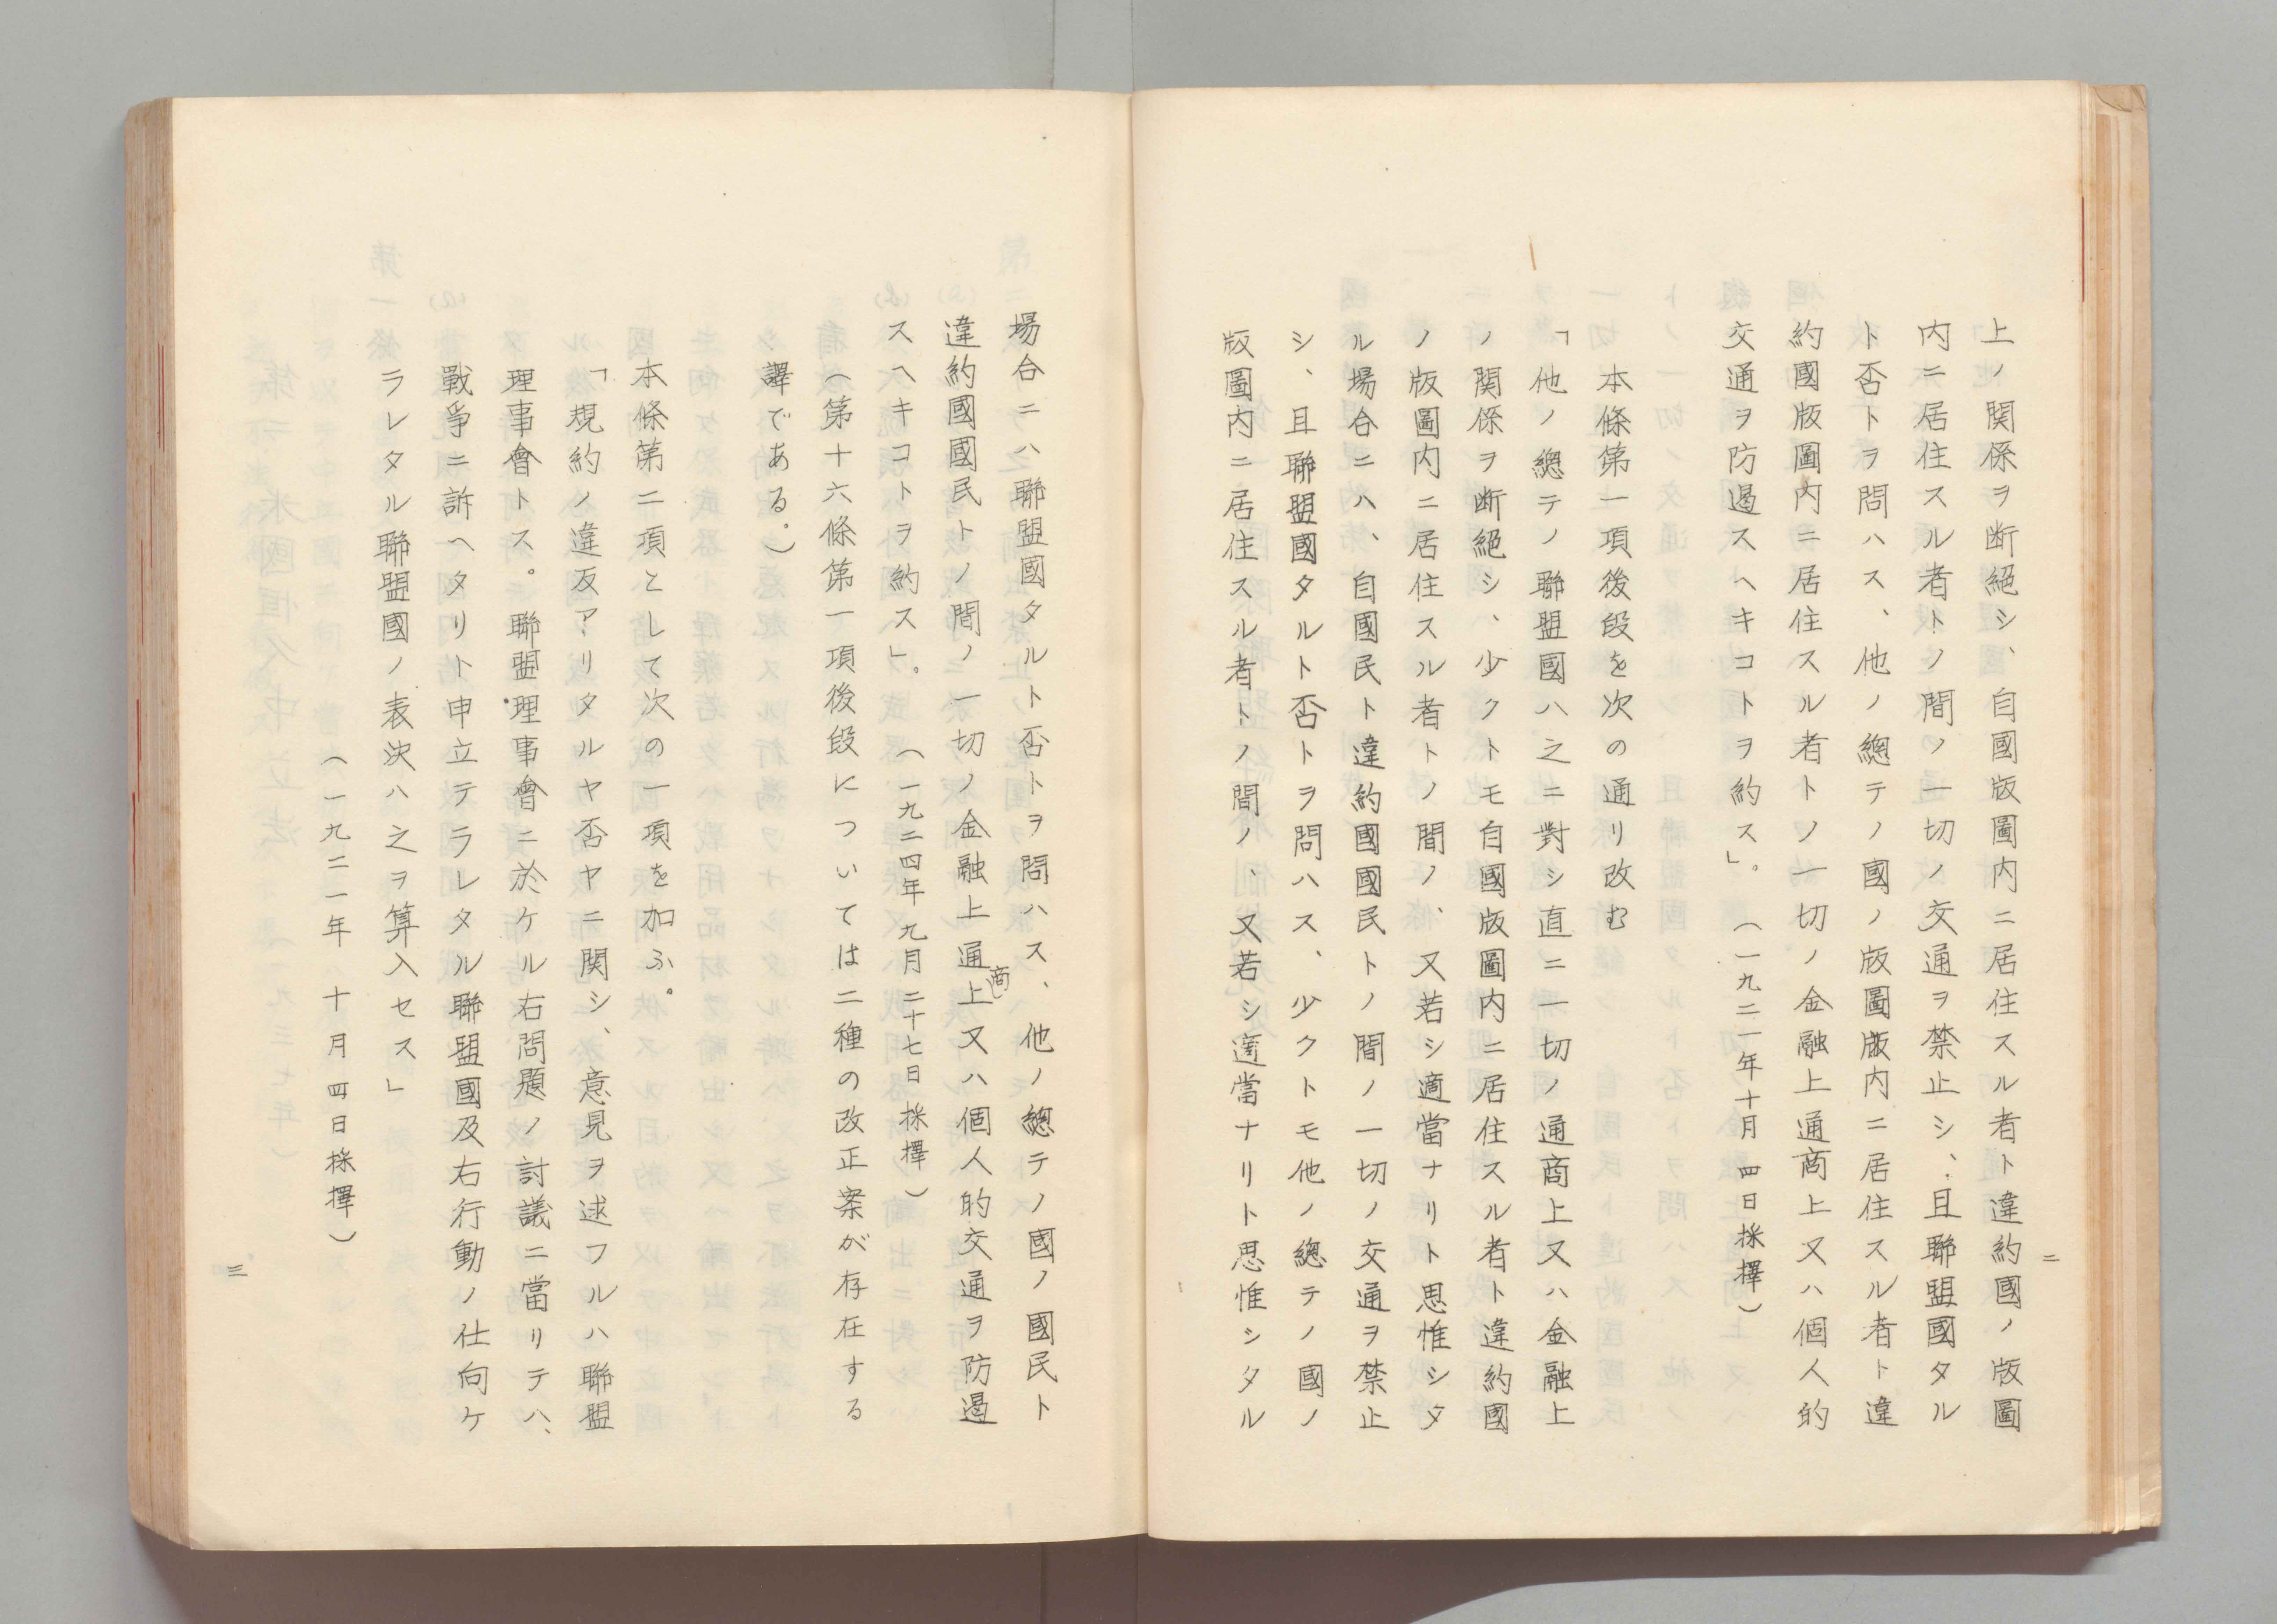 二
上ノ関係ヲ断絕シ、自國版圖内ニ居住スル者ト違約國ノ版圖
内ニ居住スル者トノ間ノ一切ノ交通ヲ禁止シ、且聯盟國タル
ト否トヲ問ハス、他ノ總テノ國ノ版圖版内ニ居住スル者ト違
約國版圖内ニ居住スル者トノ一切ノ金融上通商上又ハ個人的
交通ヲ防遏スヘキコトヲ約ス」。（一九二一年十月四日採擇）
本條第一項後段を次の通り改む
「他ノ總テノ聯盟國ハ之ニ對シ直ニ一切ノ通商上又ハ金融上
ノ関係ヲ断絕シ、少クトモ自國版圖内ニ居住スル者ト違約國
ノ版圖内ニ居住スル者トノ間ノ、又若シ適當ナリト思惟シタ
ル場合ニハ、自國民ト違約國國民トノ間ノ一切ノ交通ヲ禁止
シ、且聯盟國タルト否トヲ問ハス、少クトモ他ノ總テノ國ノ
版圖内ニ居住スル者トノ間ノ、又若シ適當ナリト思惟シタル
場合ニハ聯盟國タルト否トヲ問ハス、他ノ總テノ國ノ國民ト
違約國國民トノ間ノ一切ノ金融上通商上又ハ個人的交通ヲ防遏
スヘキコトヲ約ス」。（一九二四年九月二十七日採擇）
（第十六條第一項後段については二種の改正案が存在する
譯である。）
本條第二項として次の一項を加ふ。
「規約ノ違反アリタルヤ否ヤニ関シ、意見ヲ述フルハ聯盟
理事會トス。聯盟理事會ニ於ケル右問題ノ討議ニ當リテハ、
戰爭ニ訴ヘタリト申立テラレタル聯盟國及右行動ノ仕向ケ
ラレタル聯盟國ノ表決ハ之ヲ算入セス」
（一九二一年十月四日採擇）
三